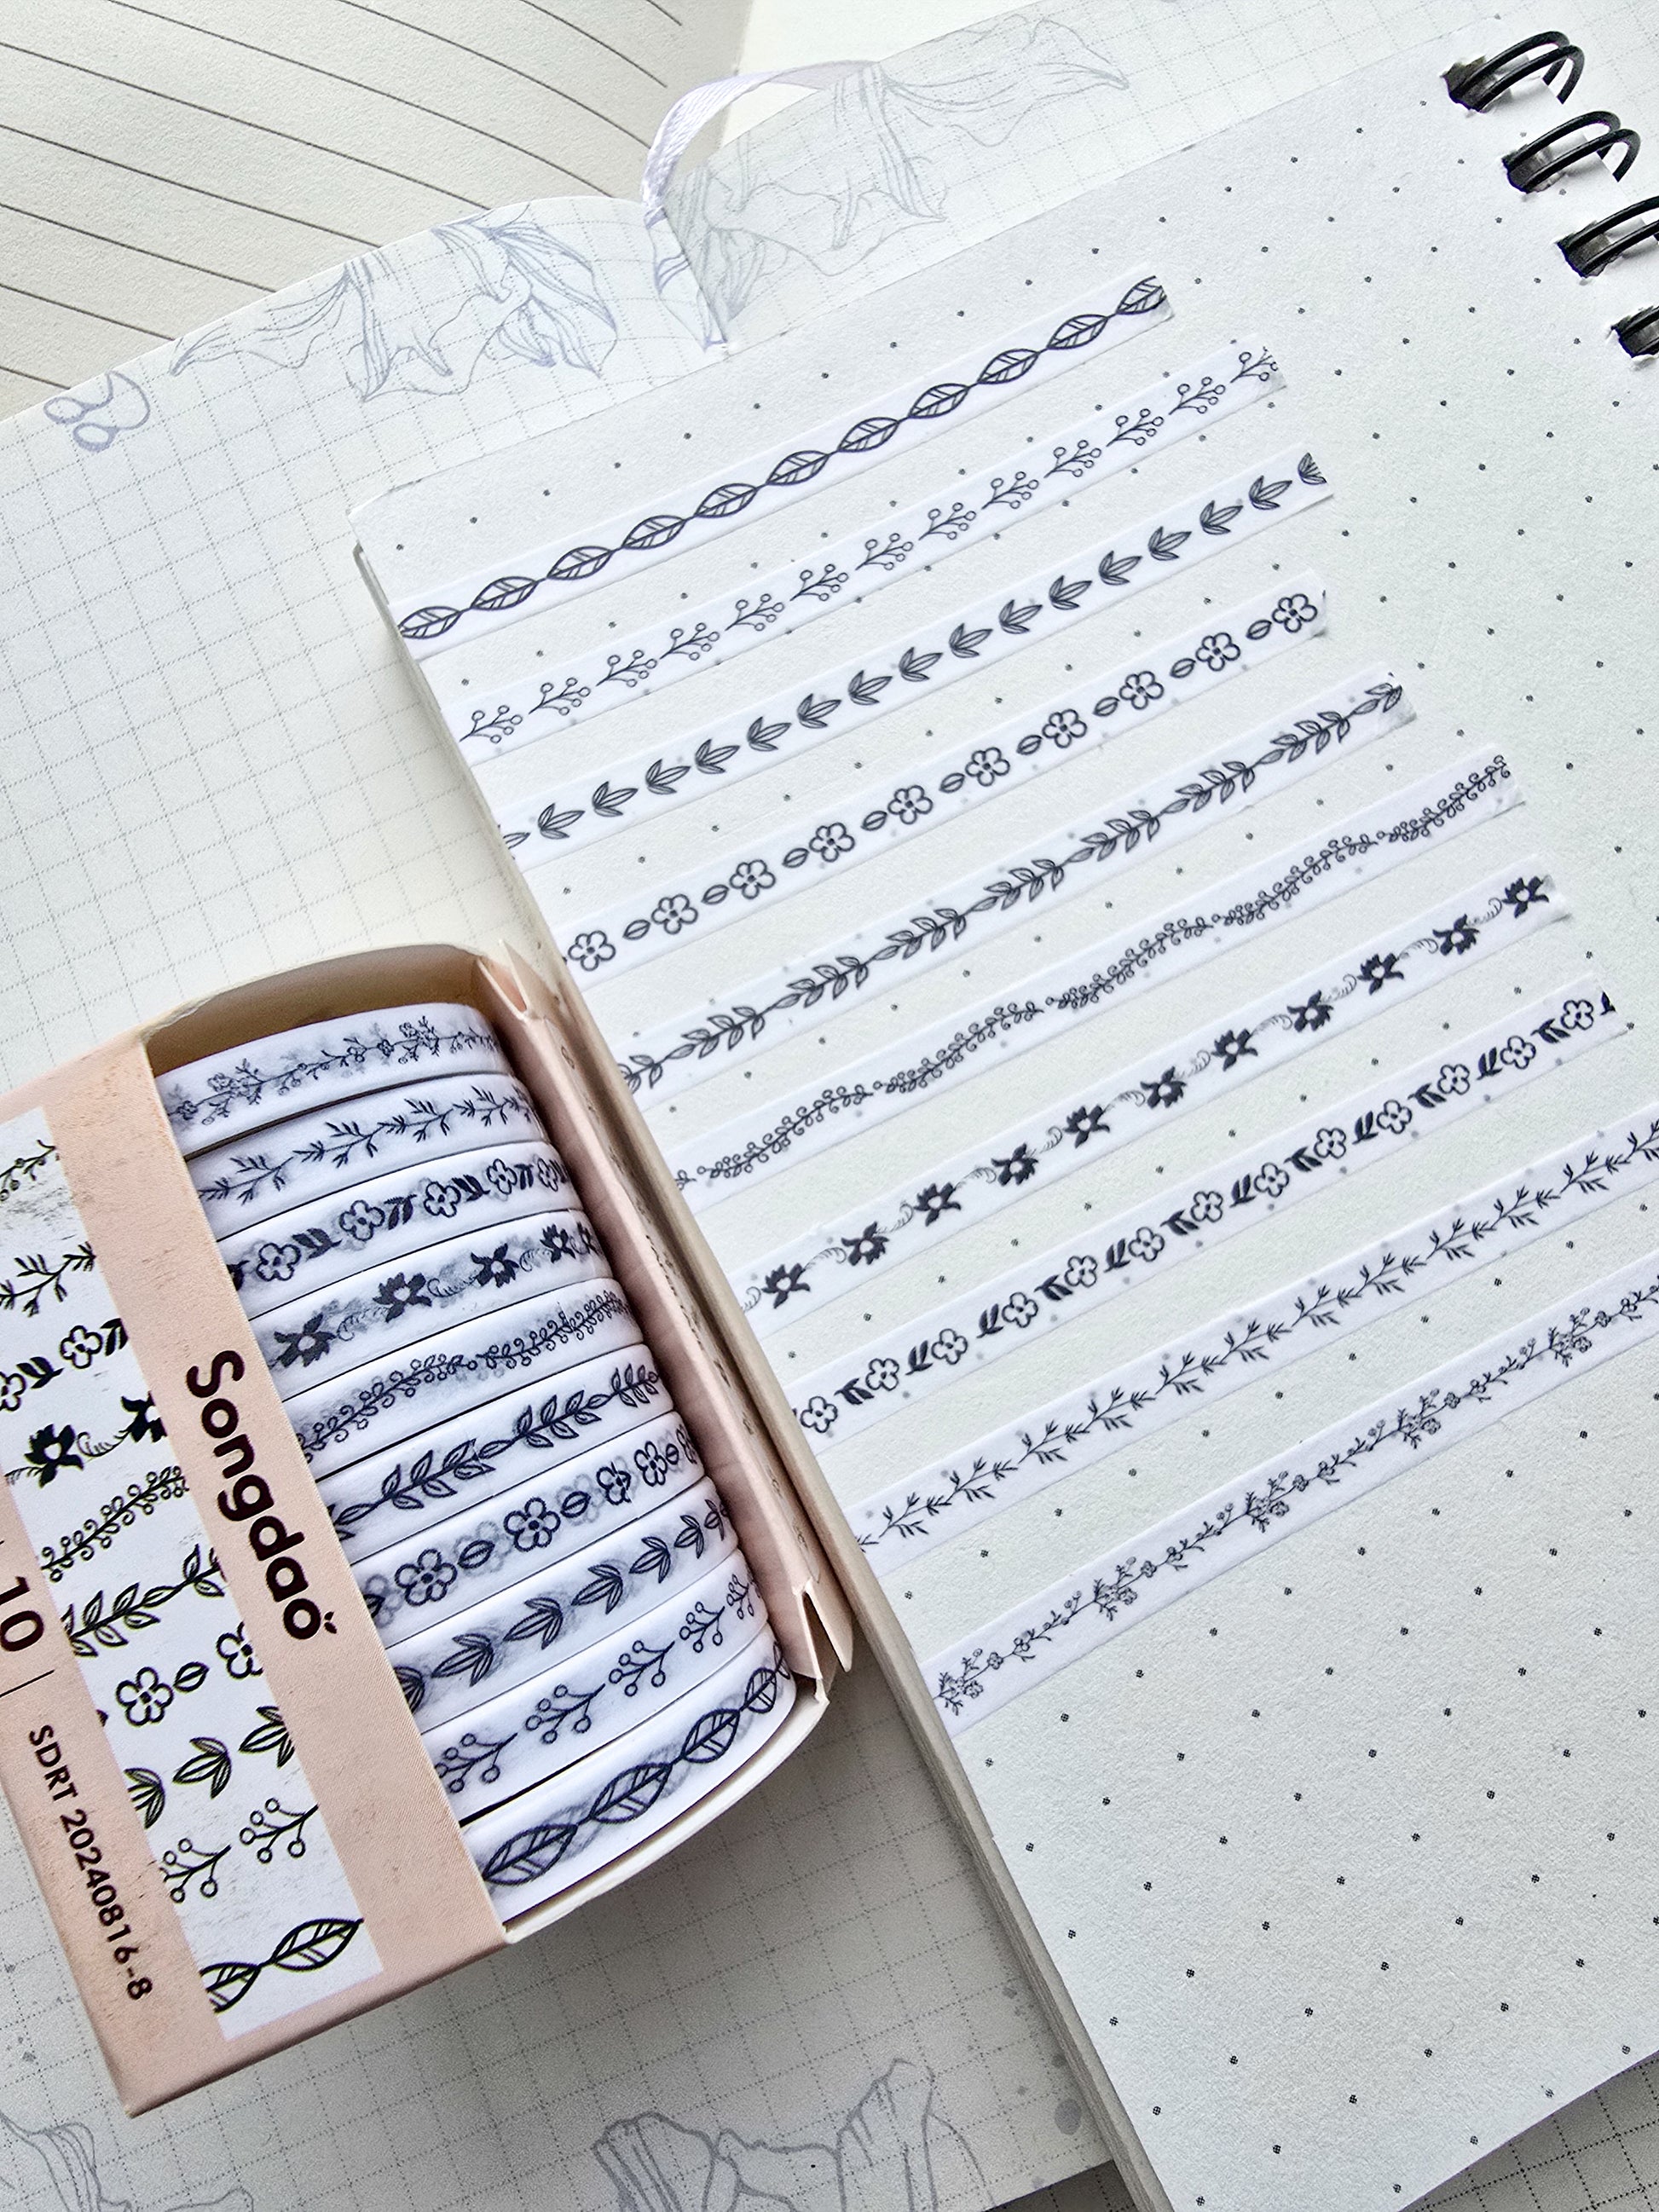 Songdaǒ
10
SDRT 20240816-8